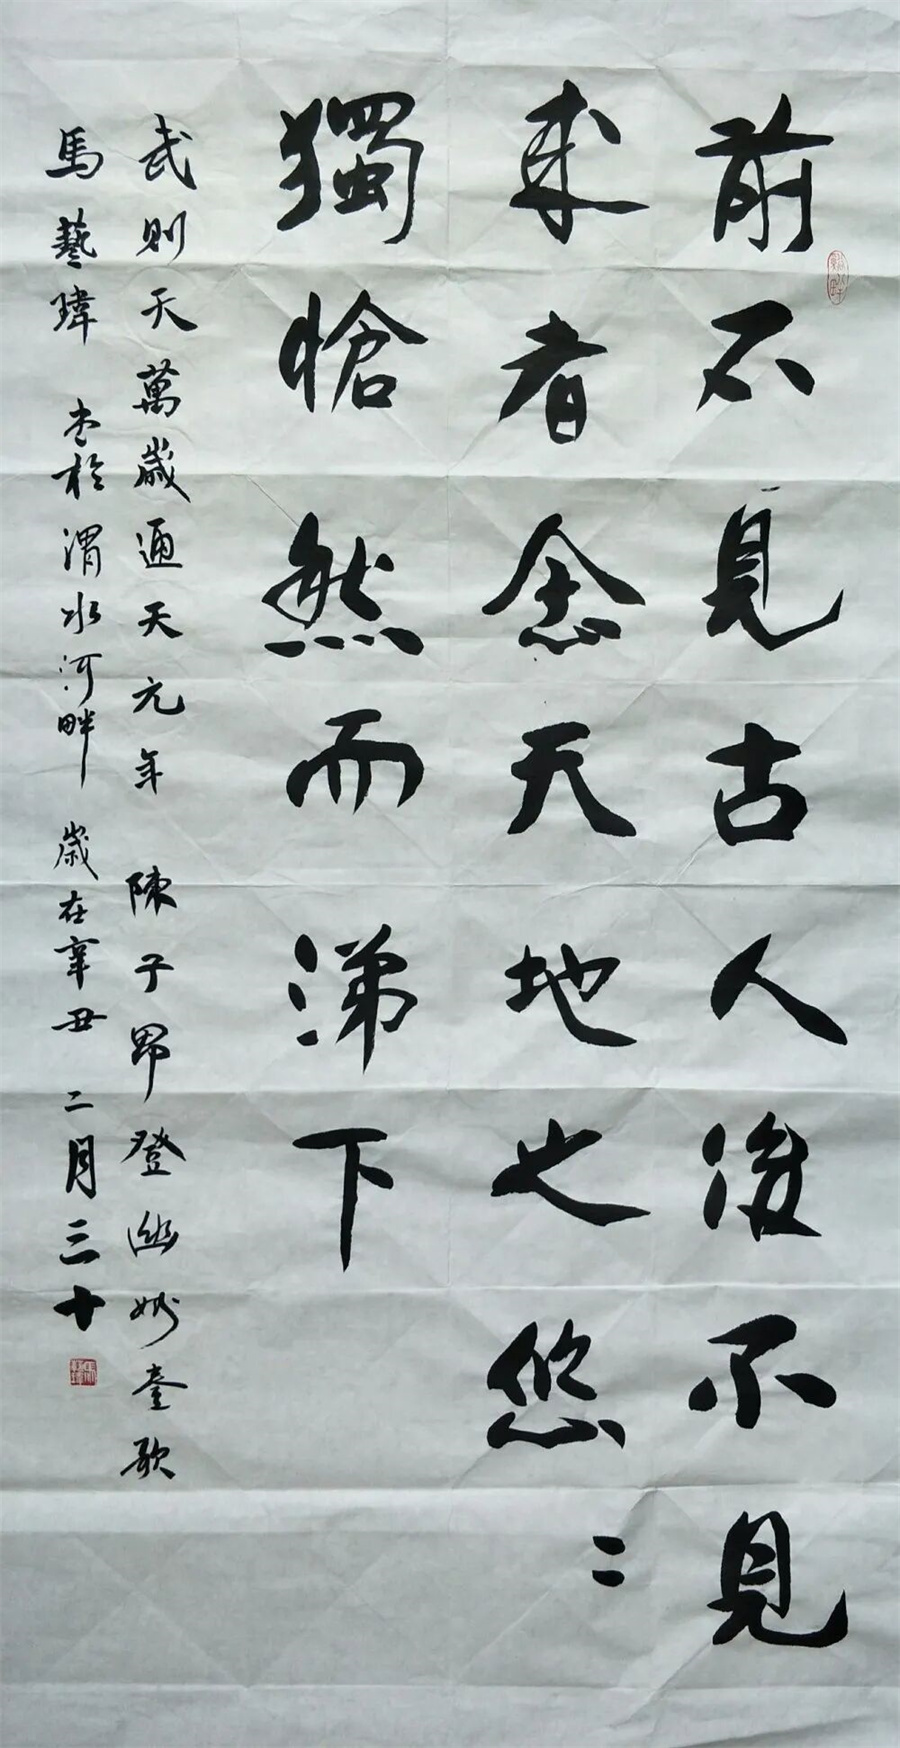 前不見古人後不見
來者念天地之悠〻
獨愴然而涕下
武則天萬歲通天元年 陳子昂登幽州臺歌
馬藝瑋 書於渭水河畔 歲在辛丑二月三十